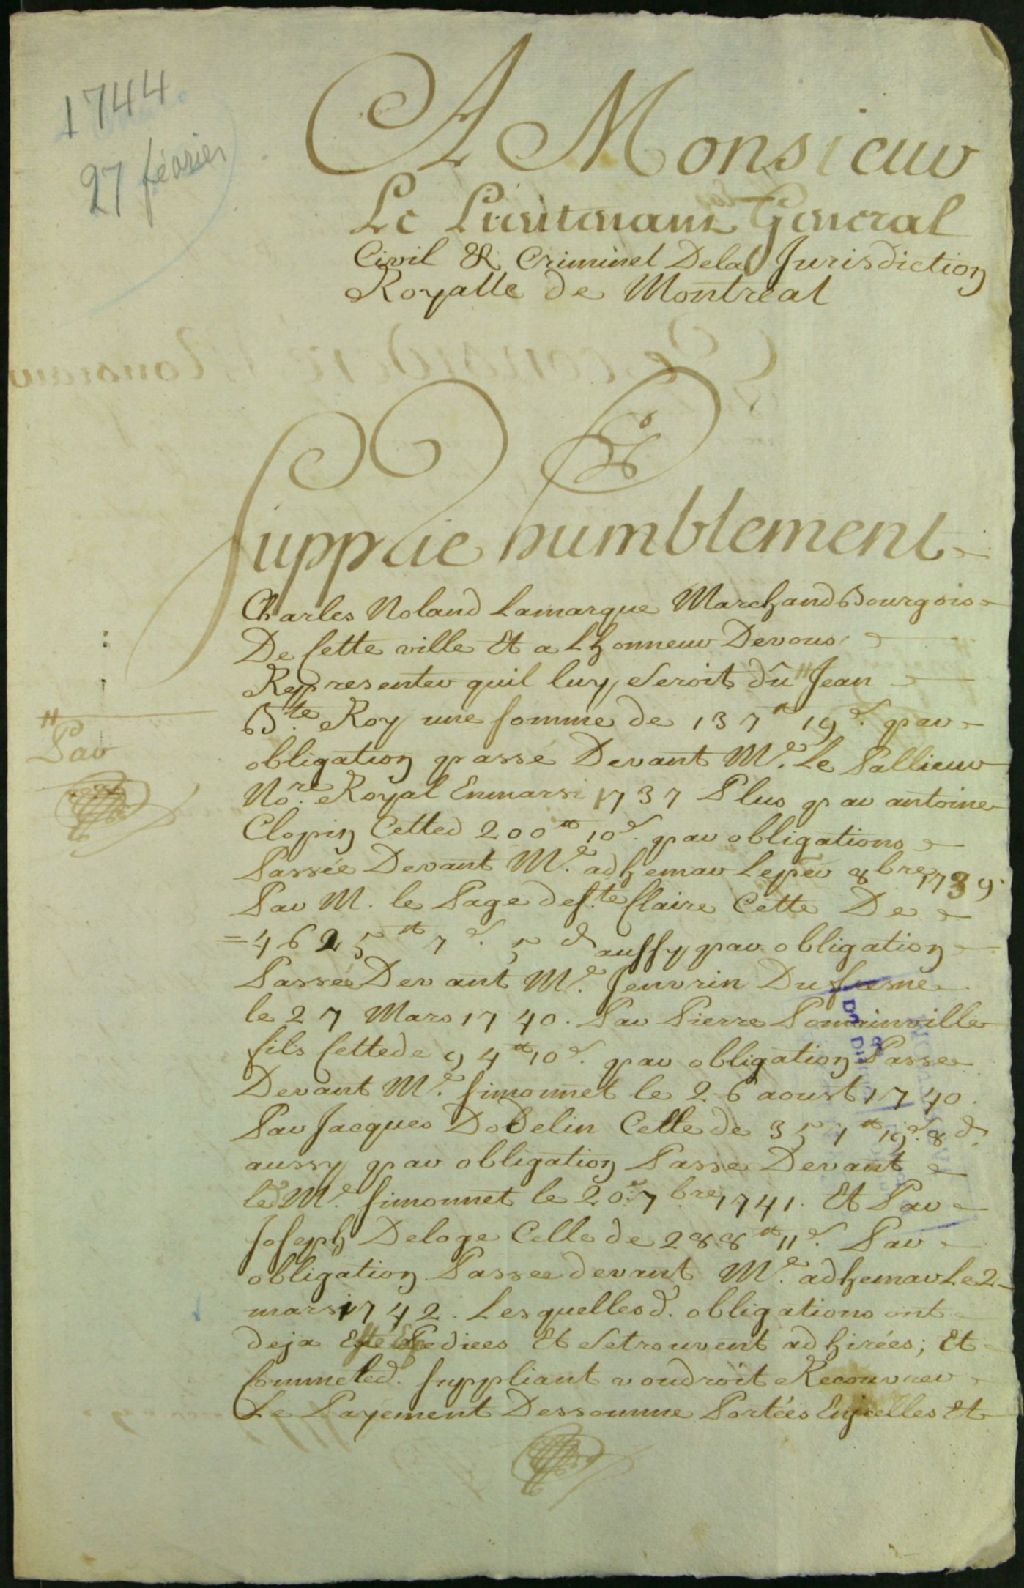 1744
27 février
A Monsieur
Le Lieutenant General
Civil & Criminel Dela Jurisdiction
Royalle de Montreal
Supplie humblement
Charles Noland Lamarque Marchand Bourgois
De Cette ville Et a Lhonneur Devous
Representer quil luy Seroit dû " Jean
Bte. Roy une Somme de 137 tt 19 s. par
"
Par
obligation passé Devant Me. Le Pallieur
Nore. Royal Enmarsi 1737 Plus par antoine
Clopin Celled 200 tt 10 s. par obligations
Passée Devant Me. adhemar Le 8bre 1739.
Par M. le Page de Ste Claire Cette De
= 4625 tt 7 s. 5 d aussy par obligation
Passée Devant Me. Janvrin Dufresne
le 27 Mars 1740. Par Pierre Pominville
fils Cettede 94 tt 10 s. par obligation Passe
Devant Me. Simonnet le 26 aoust 1740.
Par Jacques Dodelin Celle de 357 tt 19 s. 8 d.
aussy par obligation Passe Devant
led Me. Simonnet le 20. 7bre 1741. Et Par
Joseph Deloge Celle de 288 tt 11 s. Par
obligation Passée devant Me. adhemar Le 2
mars 1742. Lesquelles d. obligations ont
deja Esté Expediees Et Setrouvent adhirées; Et
Comme led. Suppliant voudroit Recouvrer
Le Payement Dessomme Portées Enicelles Et